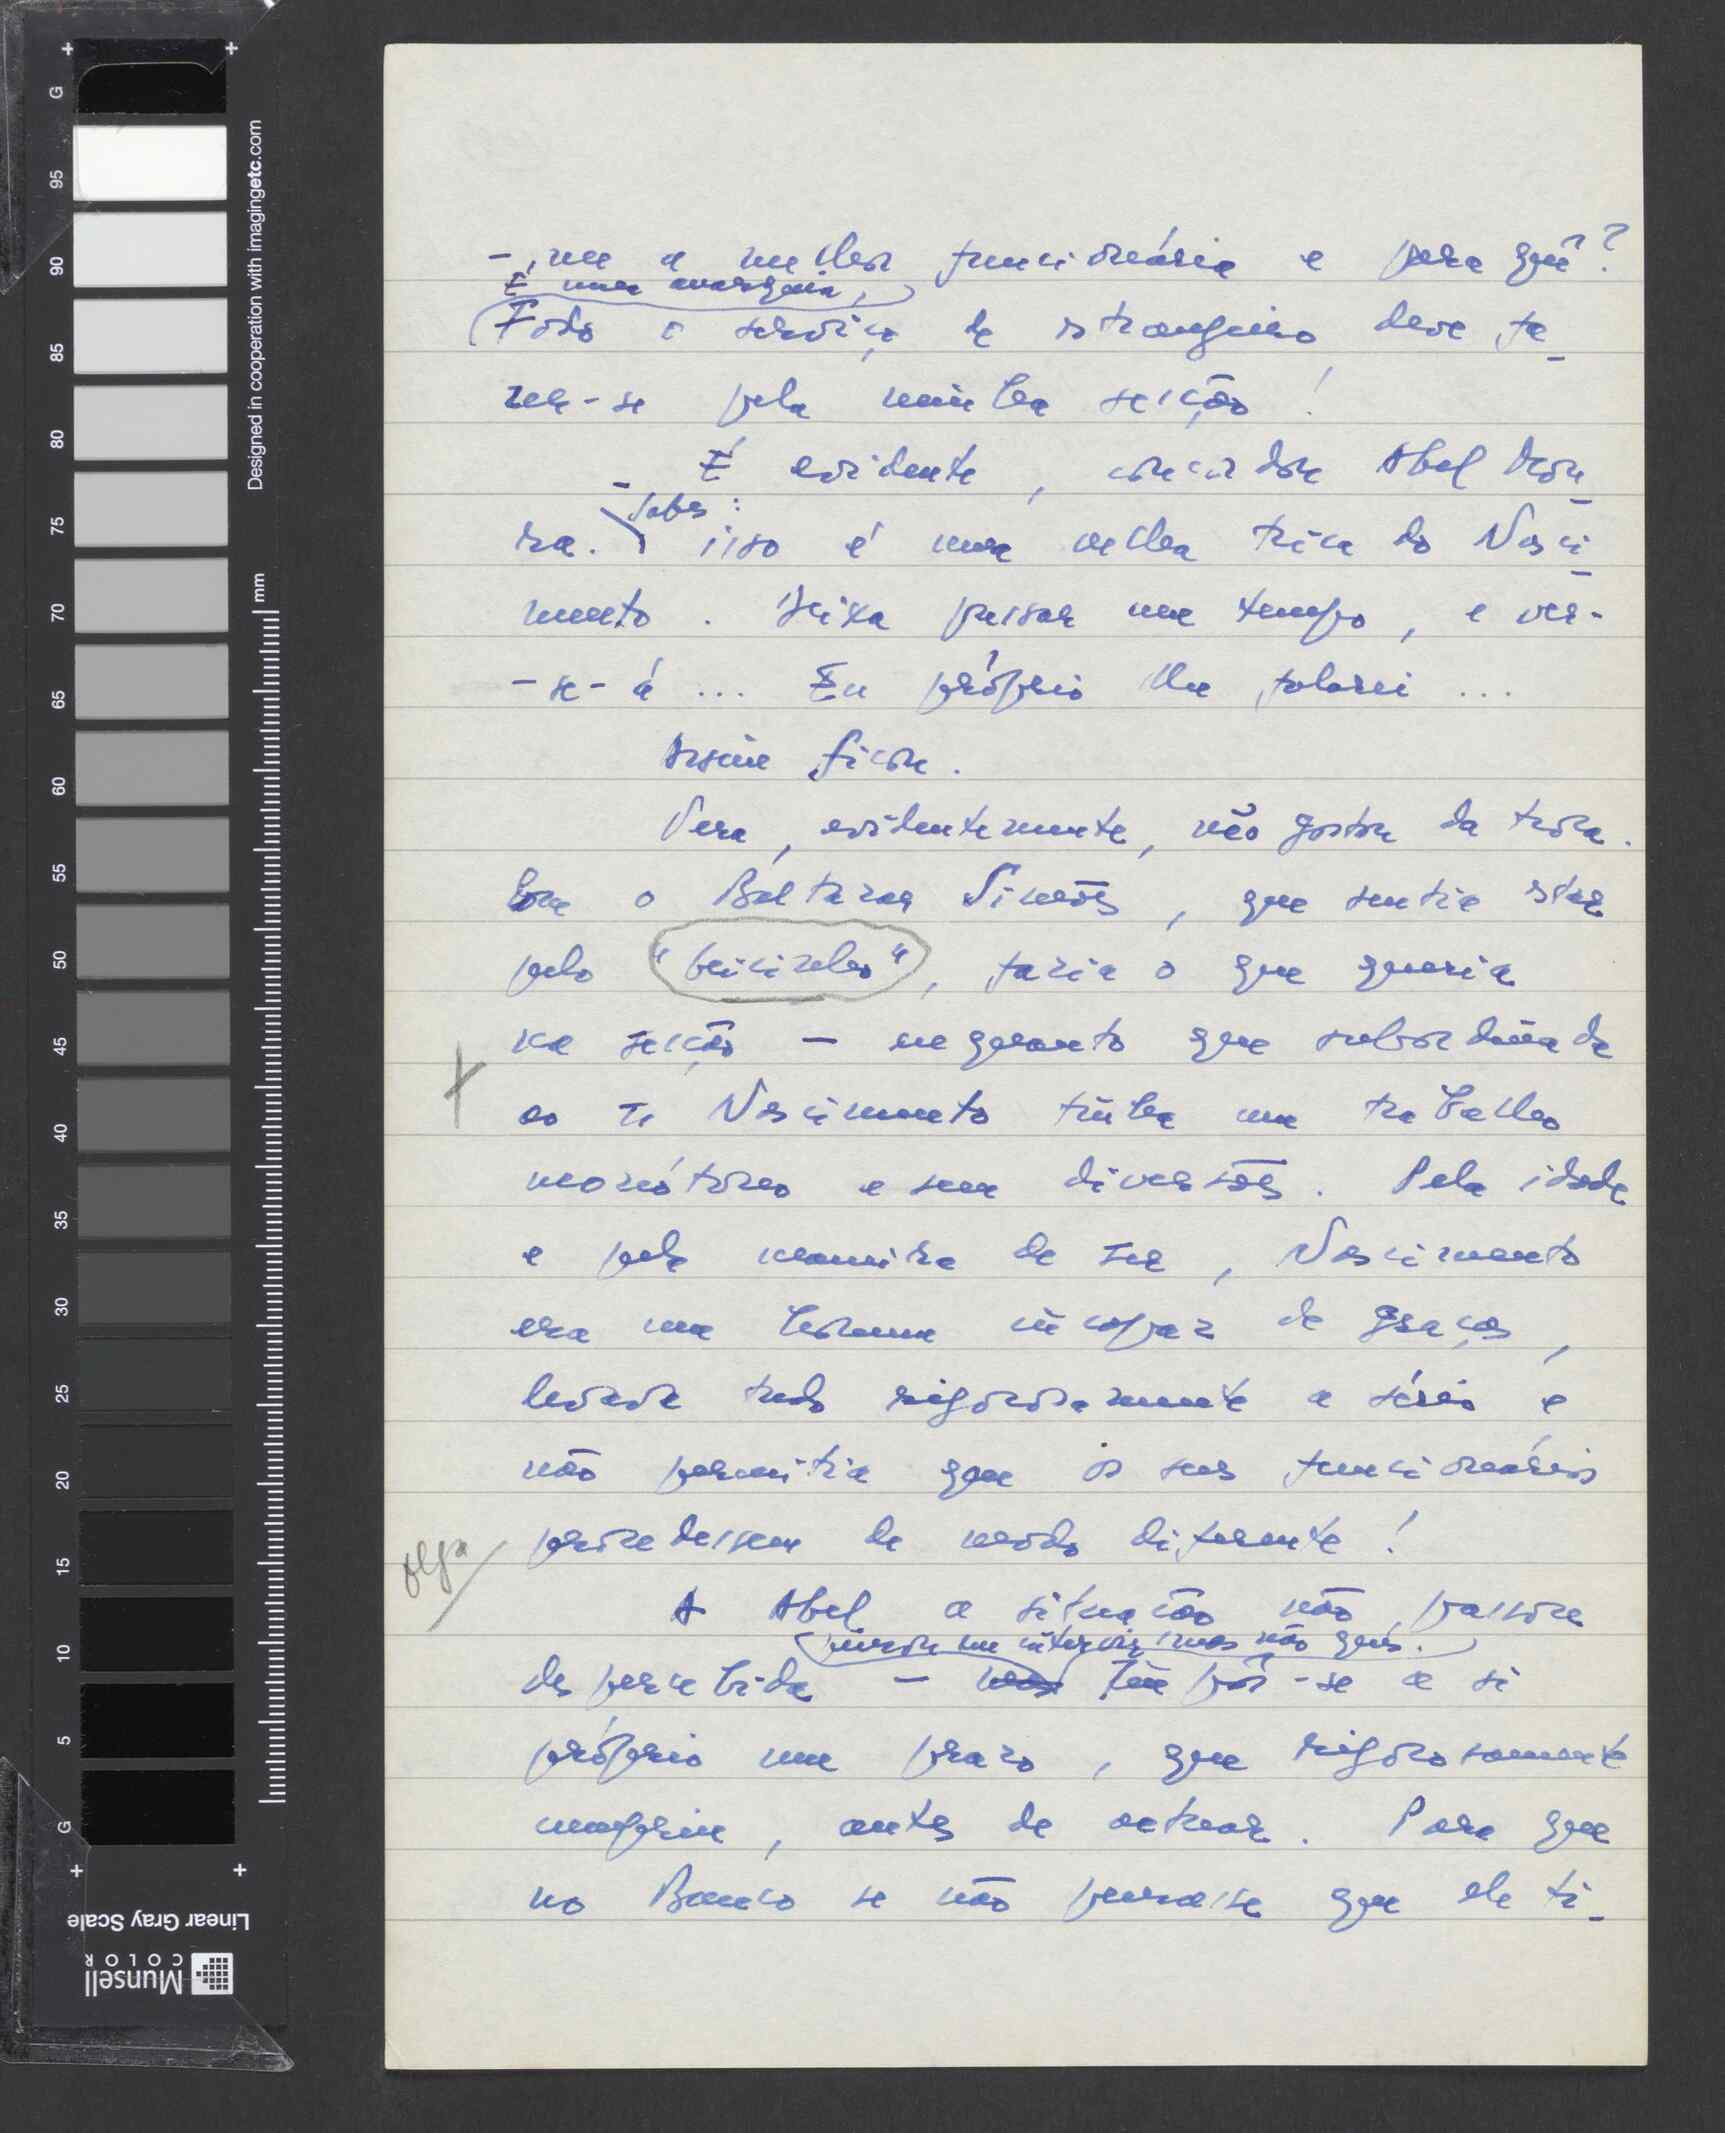 -me a melhor funcionária e para quê?
É uma anarquia,
Todo o serviço de estrangeiro deve fa-
zer-se pela minha secção!
- É evidente, concordou Abel Mou-
ra. Sabes:
isso é uma velha trica do Nasci-
mento. Deixa passar um tempo, e ver-
-se-á... Eu próprio lhe falarei...
Assim ficou.
Vera, evidentemente, não gostou da troca.
Com o Baltazar Simões, que sentia estar
pelo "beicinho", fazia o que queria
na secção — enquanto que subordinada
ao Nascimento tinha um trabalho
monótono e sem diversões. Pela idade
e pela maneira de ser, Nascimento
era um homem incapaz de graças,
levava tudo rigorosamente a sério e
não permitia que os seus funcionários
procedessem de modo diferente!
Olga
A Abel a situação não passou
pensou em intervir, mas não quis.
despercebida — Impôs-se a si
próprio um prazo, que rigorosamente
cumpriu, antes de actuar. Para que
no Banco se não pensasse que ele ti-
Designed in cooperation with imagingetc.com
mm
G
95
90
85
80
75
70
65
60
55
50
45
40
35
30
25
20
15
10
5
G
Linear Gray Scale
Munsell
COLOR